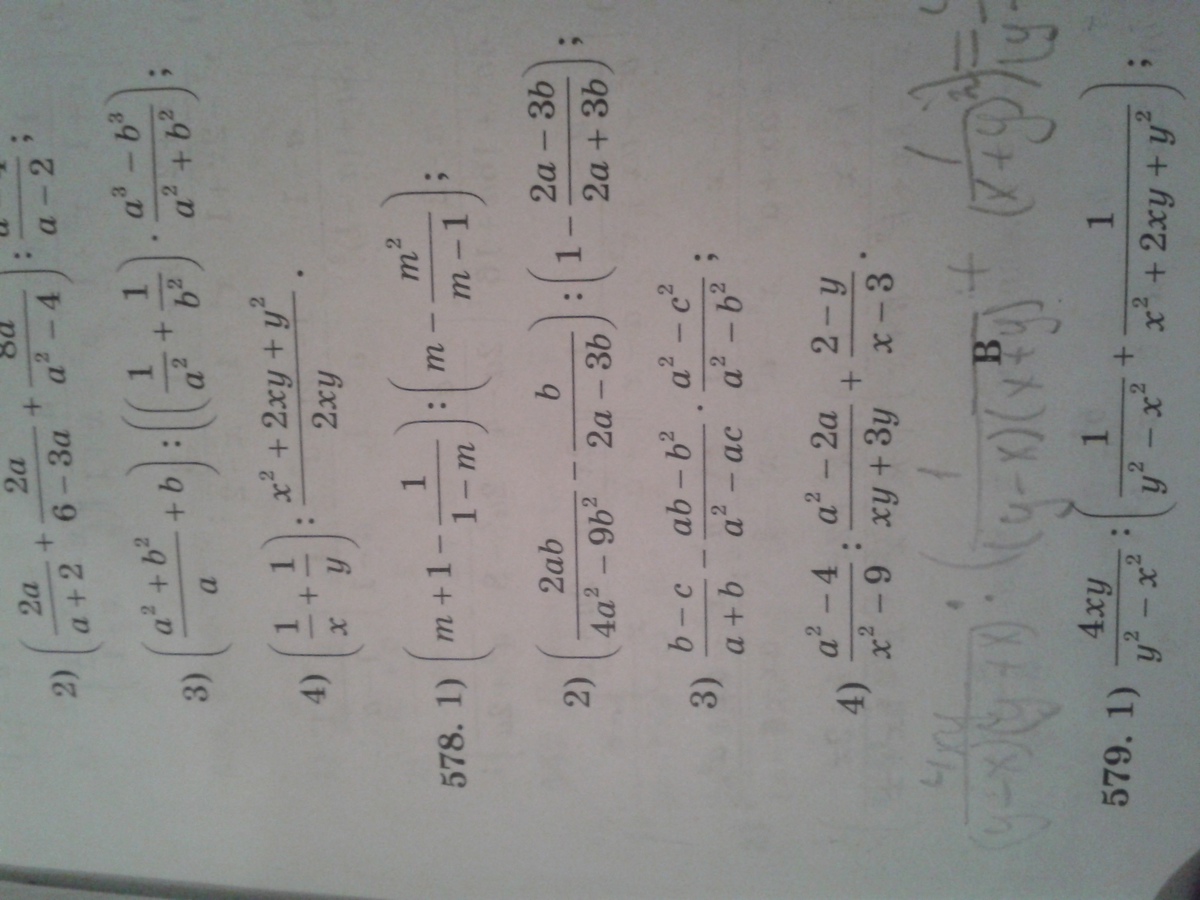 2) (2a/(a + 2) + 2a/(6 − 3a) + 8a/(a² − 4)) : /(a − 2);
3) ((a² + b²)/a + b) : ((1/a² + 1/b²) · (a³ − b³)/(a² + b²));
4) (1/x + 1/y) : (x² + 2xy + y²)/(2xy).
578. 1) (m + 1 − 1/(1 − m)) : (m − m²/(m − 1));
2) (2ab/(4a² − 9b²) − b/(2a − 3b)) : (1 − (2a − 3b)/(2a + 3b));
3) (b − c)/(a + b) − (ab − b²)/(a² − ac) · (a² − c²)/(a² − b²);
4) (a² − 4)/(x² − 9) : (a² − 2a)/(xy + 3y) + (2 − y)/(x − 3).
4xy/((y−x)(y+x)) : (1/((y−x)(x+y)) + 1/(x+y)²) =
В
579. 1) 4xy/(y² − x²) : (1/(y² − x²) + 1/(x² + 2xy + y²));